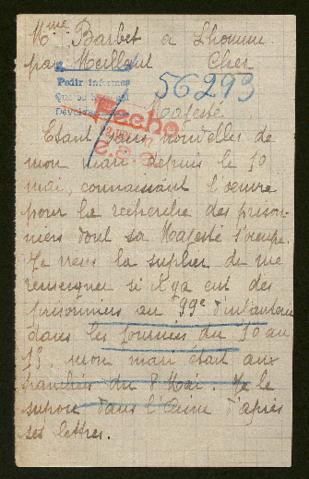 Mme Barbet a Lhomme
par Meillant Cher
Pedir informes
56293
Fecho
Majesté
Etant sans nouvelles de
mon mari depuis le 10
mai, connaissant l'oeuvre
pour la recherche des prison-
niers dont sa Majesté s'occupe.
Je viens la suplier de me
renseigner si il y a eut des
prisonniers au 99e d'infanterie
dans les journées du 10 au
mon mari était aux
tranchées du 8 Mai. Je le
supose dans l'Aisne d'après
ses lettres.